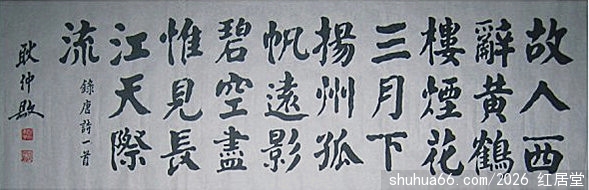 故人西
辭黄鶴
樓煙花
三月下
揚州孤
帆遠影
碧空盡
惟見長
江天際
流
錄唐詩一首
耿仲
shuhua66.com/2026 红居堂